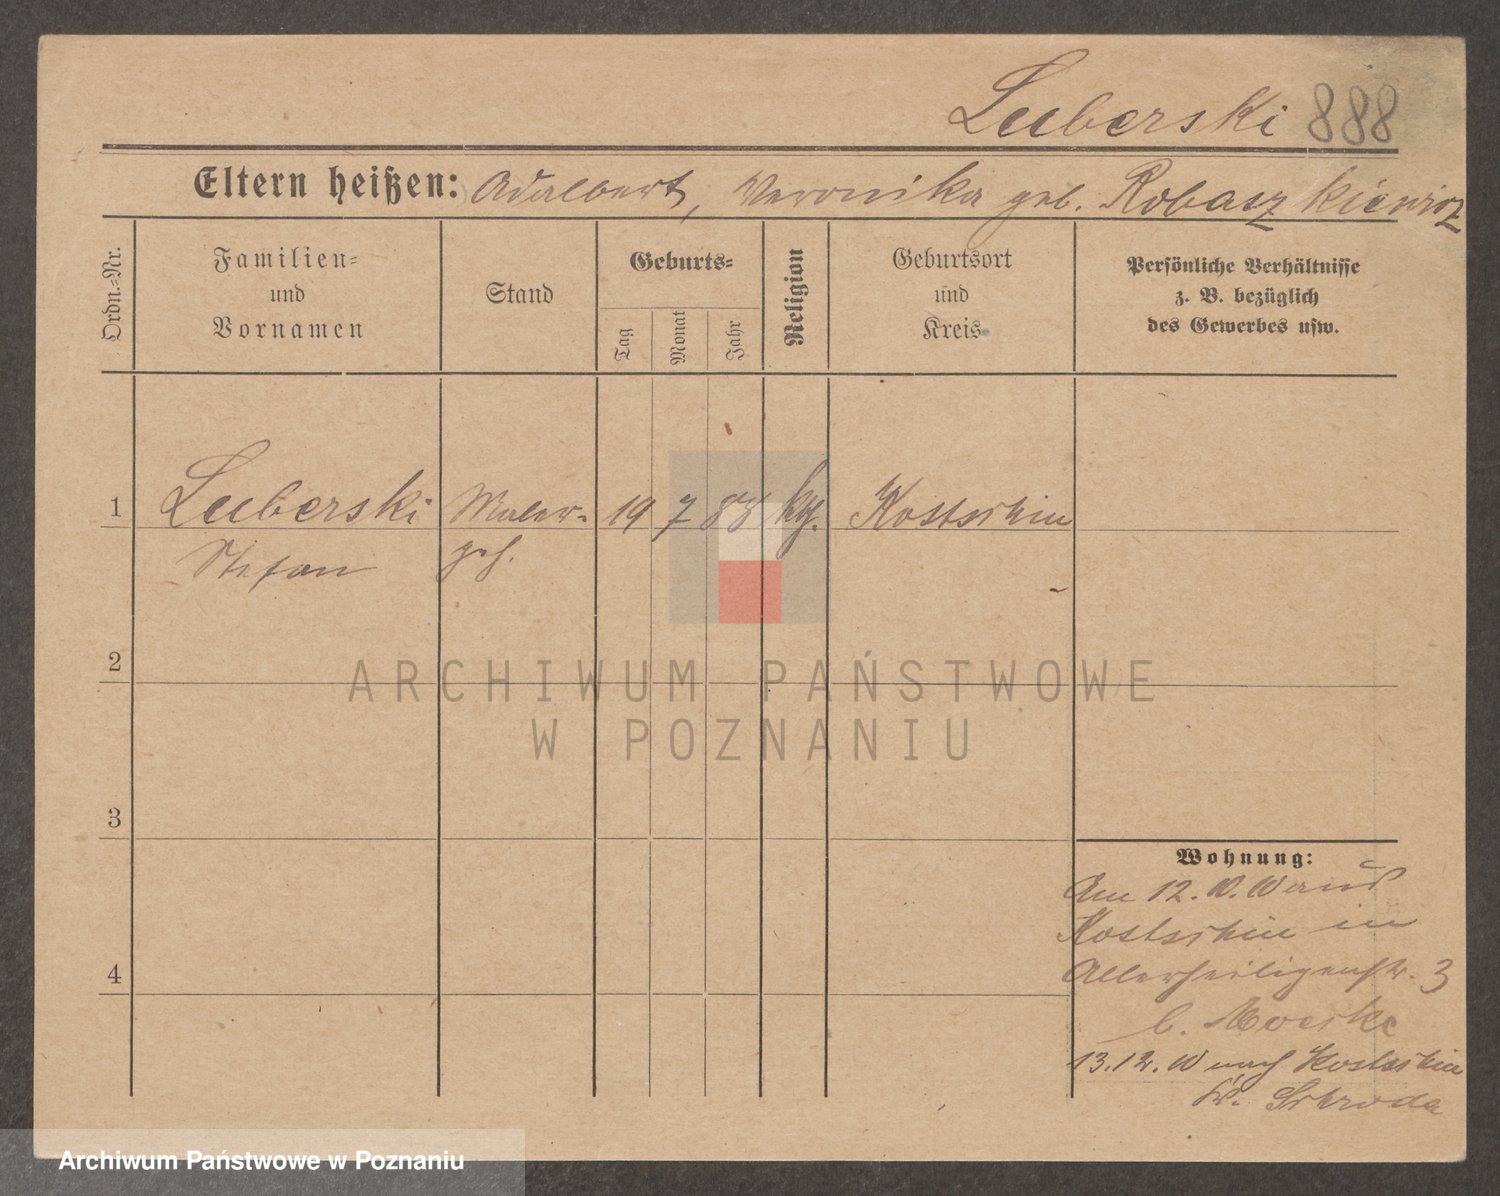 Luberski 888
Eltern heißen: Adalbert, Veronika geb. Robaszkiewicz
Ordn.-Nr.
Familien-
und
Vornamen
Stand
Geburts-
Tag
Monat
Jahr
Religion
Geburtsort
und
Kreis
Persönliche Verhältnisse
z. B. bezüglich
des Gewerbes usw.
1 Luberski Maler- 19 7 88 kg. Kostschin
Stefan geh.
2
ARCHIWUM PAŃSTWOWE
W POZNANIU
3
4
Wohnung:
Am 12. 10. 10 aus
Kostschin in
Allerheiligenstr. 3
b.
13. 12. 10 nach Kostschin
Kr. Schroda
Archiwum Państwowe w Poznaniu